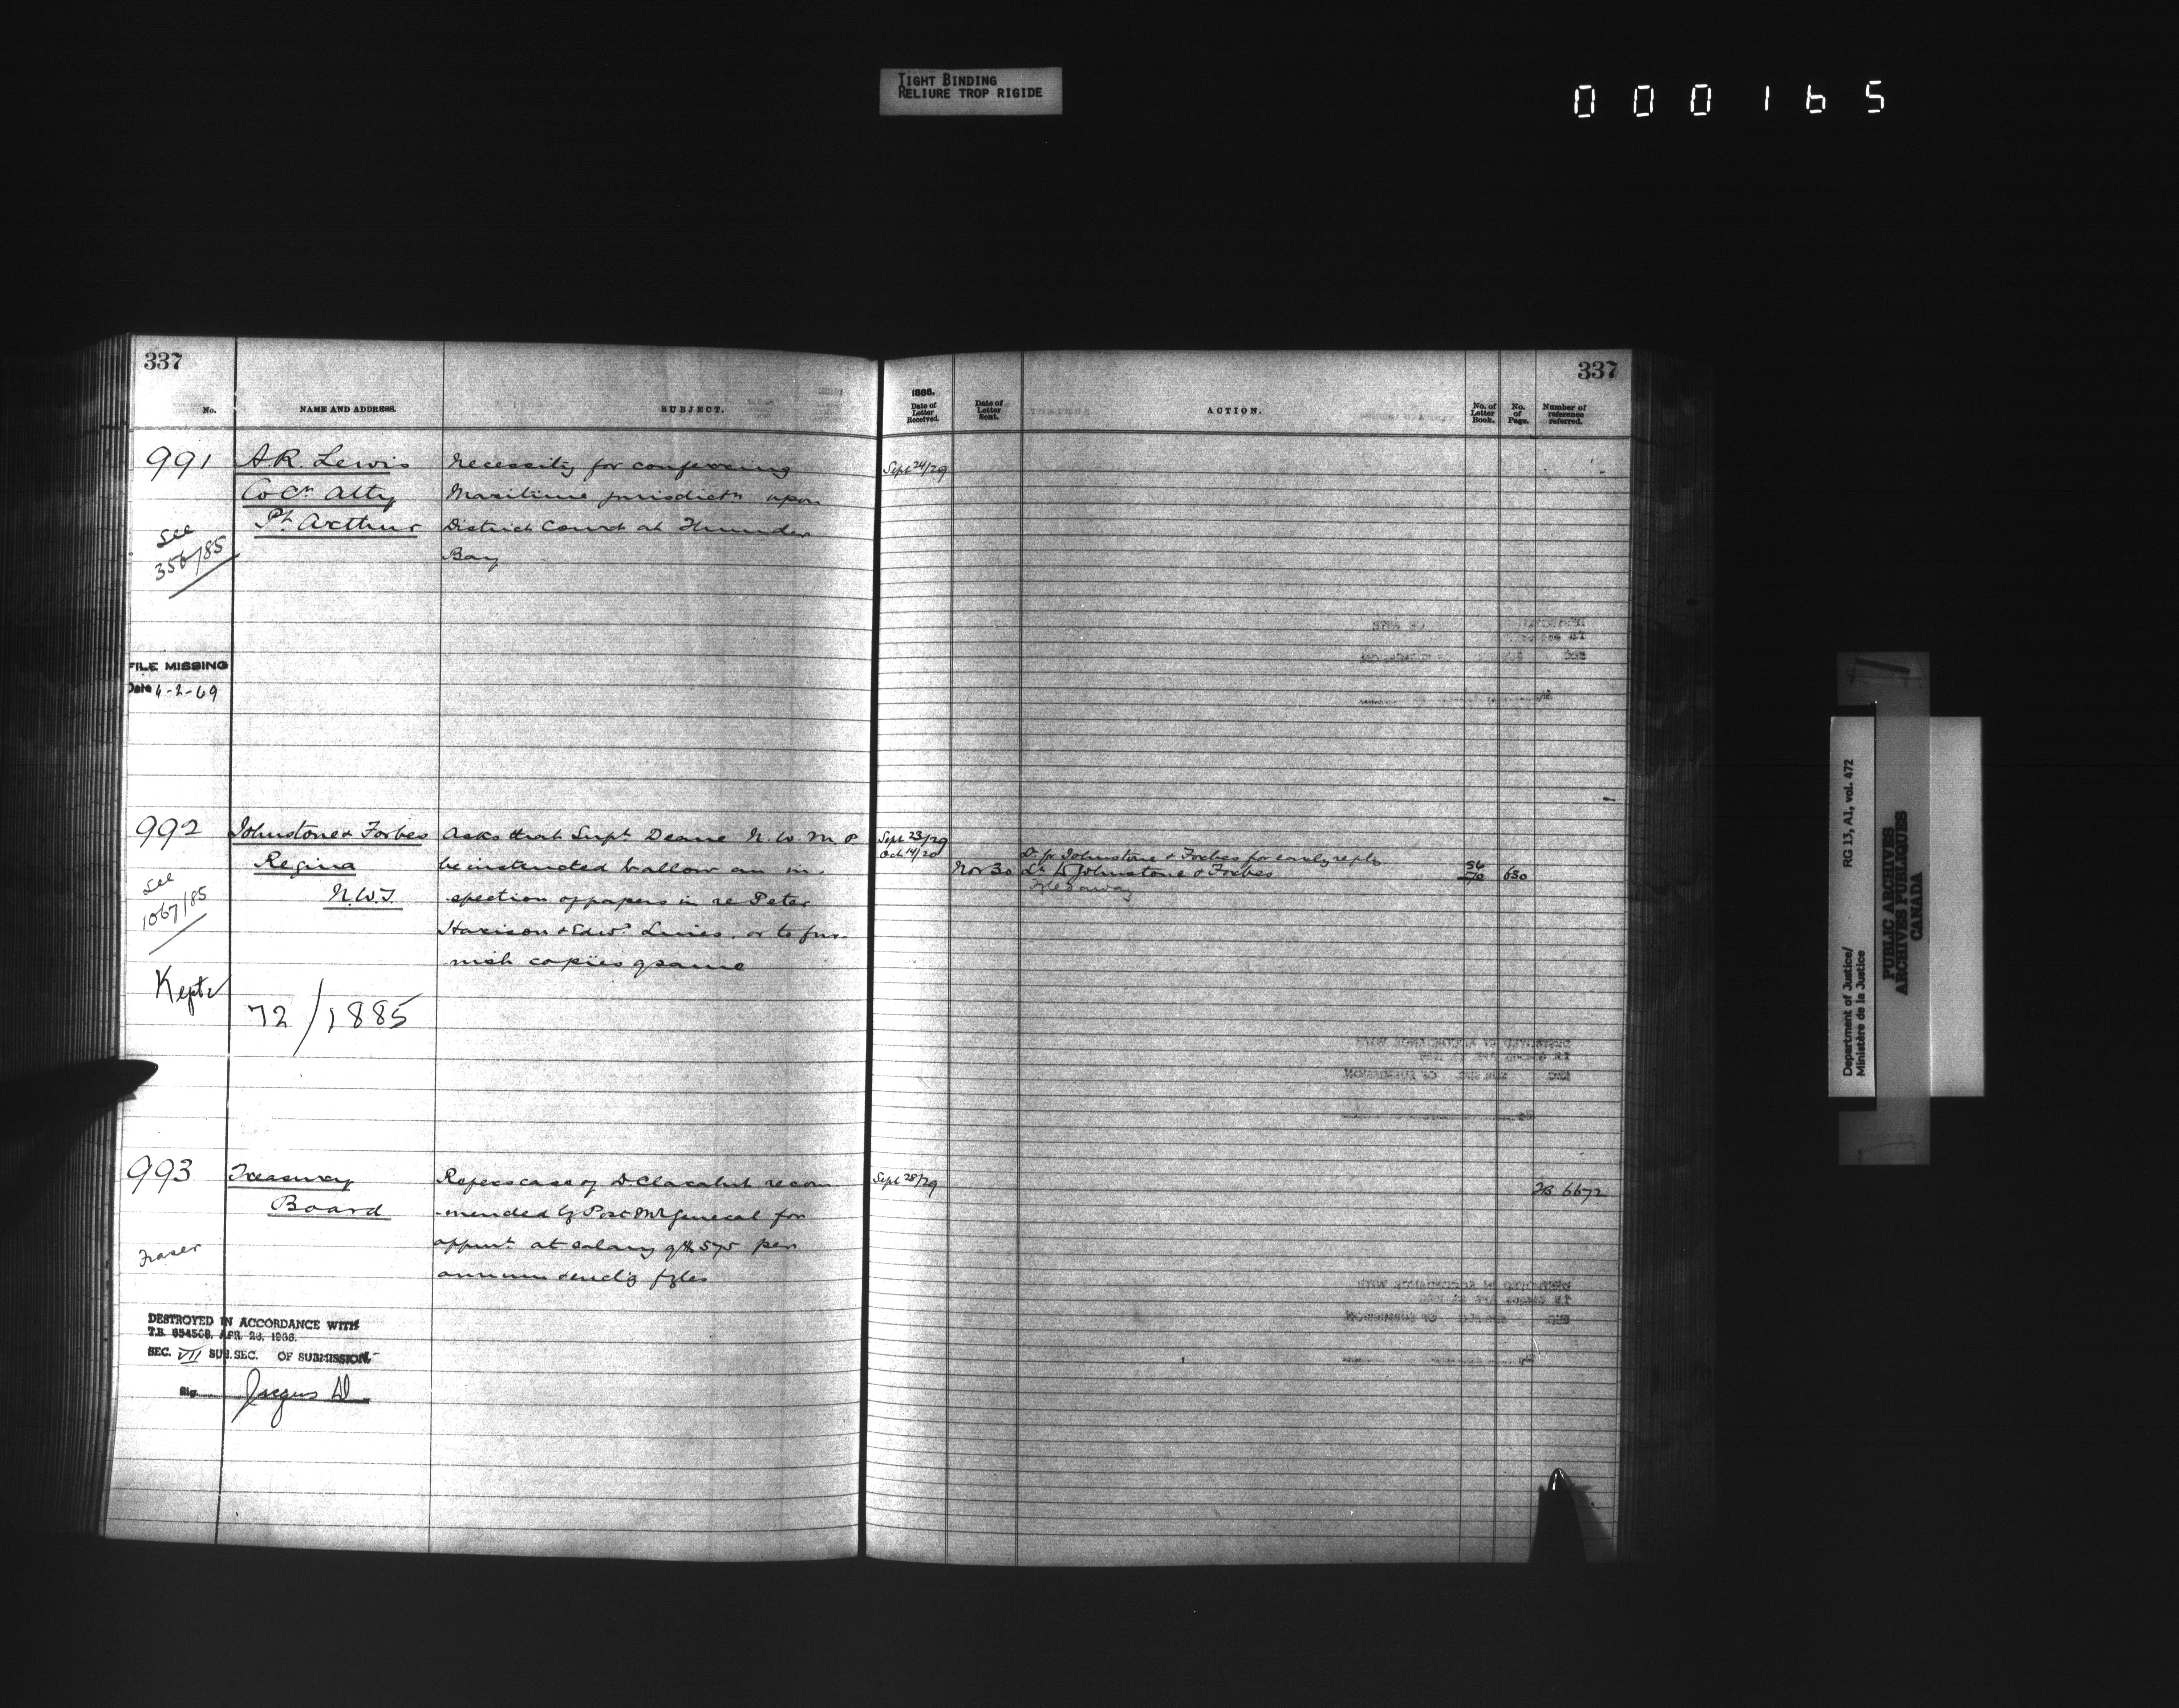 TIGHT BINDING
RELIURE TROP RIGIDE
000165
337
No.
NAME AND ADDRESS.
SUBJECT.
991
A.R. Lewis
Co Cn Atty
Pt Arthur
See
356/85
Necessity for conferring
Maritime jurisdictn upon
District Court at Thunder
Bay
FILE MISSING
Date 4-2-69
992
Johnstone & Forbes
Regina
N.W.T.
See
1067/85
Kept
72/1885
Asks that Supt Deane N.W.M.P
be instructed to allow an in-
spection of papers in re Peter
Harison & Edwd , or to fur-
nish copies of same
993
Treasury
Board
Fraser
Refers case of D. recom
-mended by Post Mr General for
appmt at salary of $ 575 per
annum
DESTROYED IN ACCORDANCE WITH
T.B. 654508, APR. 26, 1966.
SEC. VII SUB.SEC. OF SUBMISSION.
Sig.
337
1885.
Date of
Letter
Received.
Date of
Letter
Sent.
ACTION.
No. of
Letter
Book.
No.
of
Page.
Number of
reference
referred.
Sept 24/29
Sept 23/29
Oct 14/20
Lr fr Johnstone & Forbes for early reply
Nov 30 Lr to Johnstone & Forbes 56/70 650
Sept 28/29
TB 6672
Department of Justice/
Ministère de la Justice
RG 13, A1, vol. 472
PUBLIC ARCHIVES
ARCHIVES PUBLIQUES
CANADA